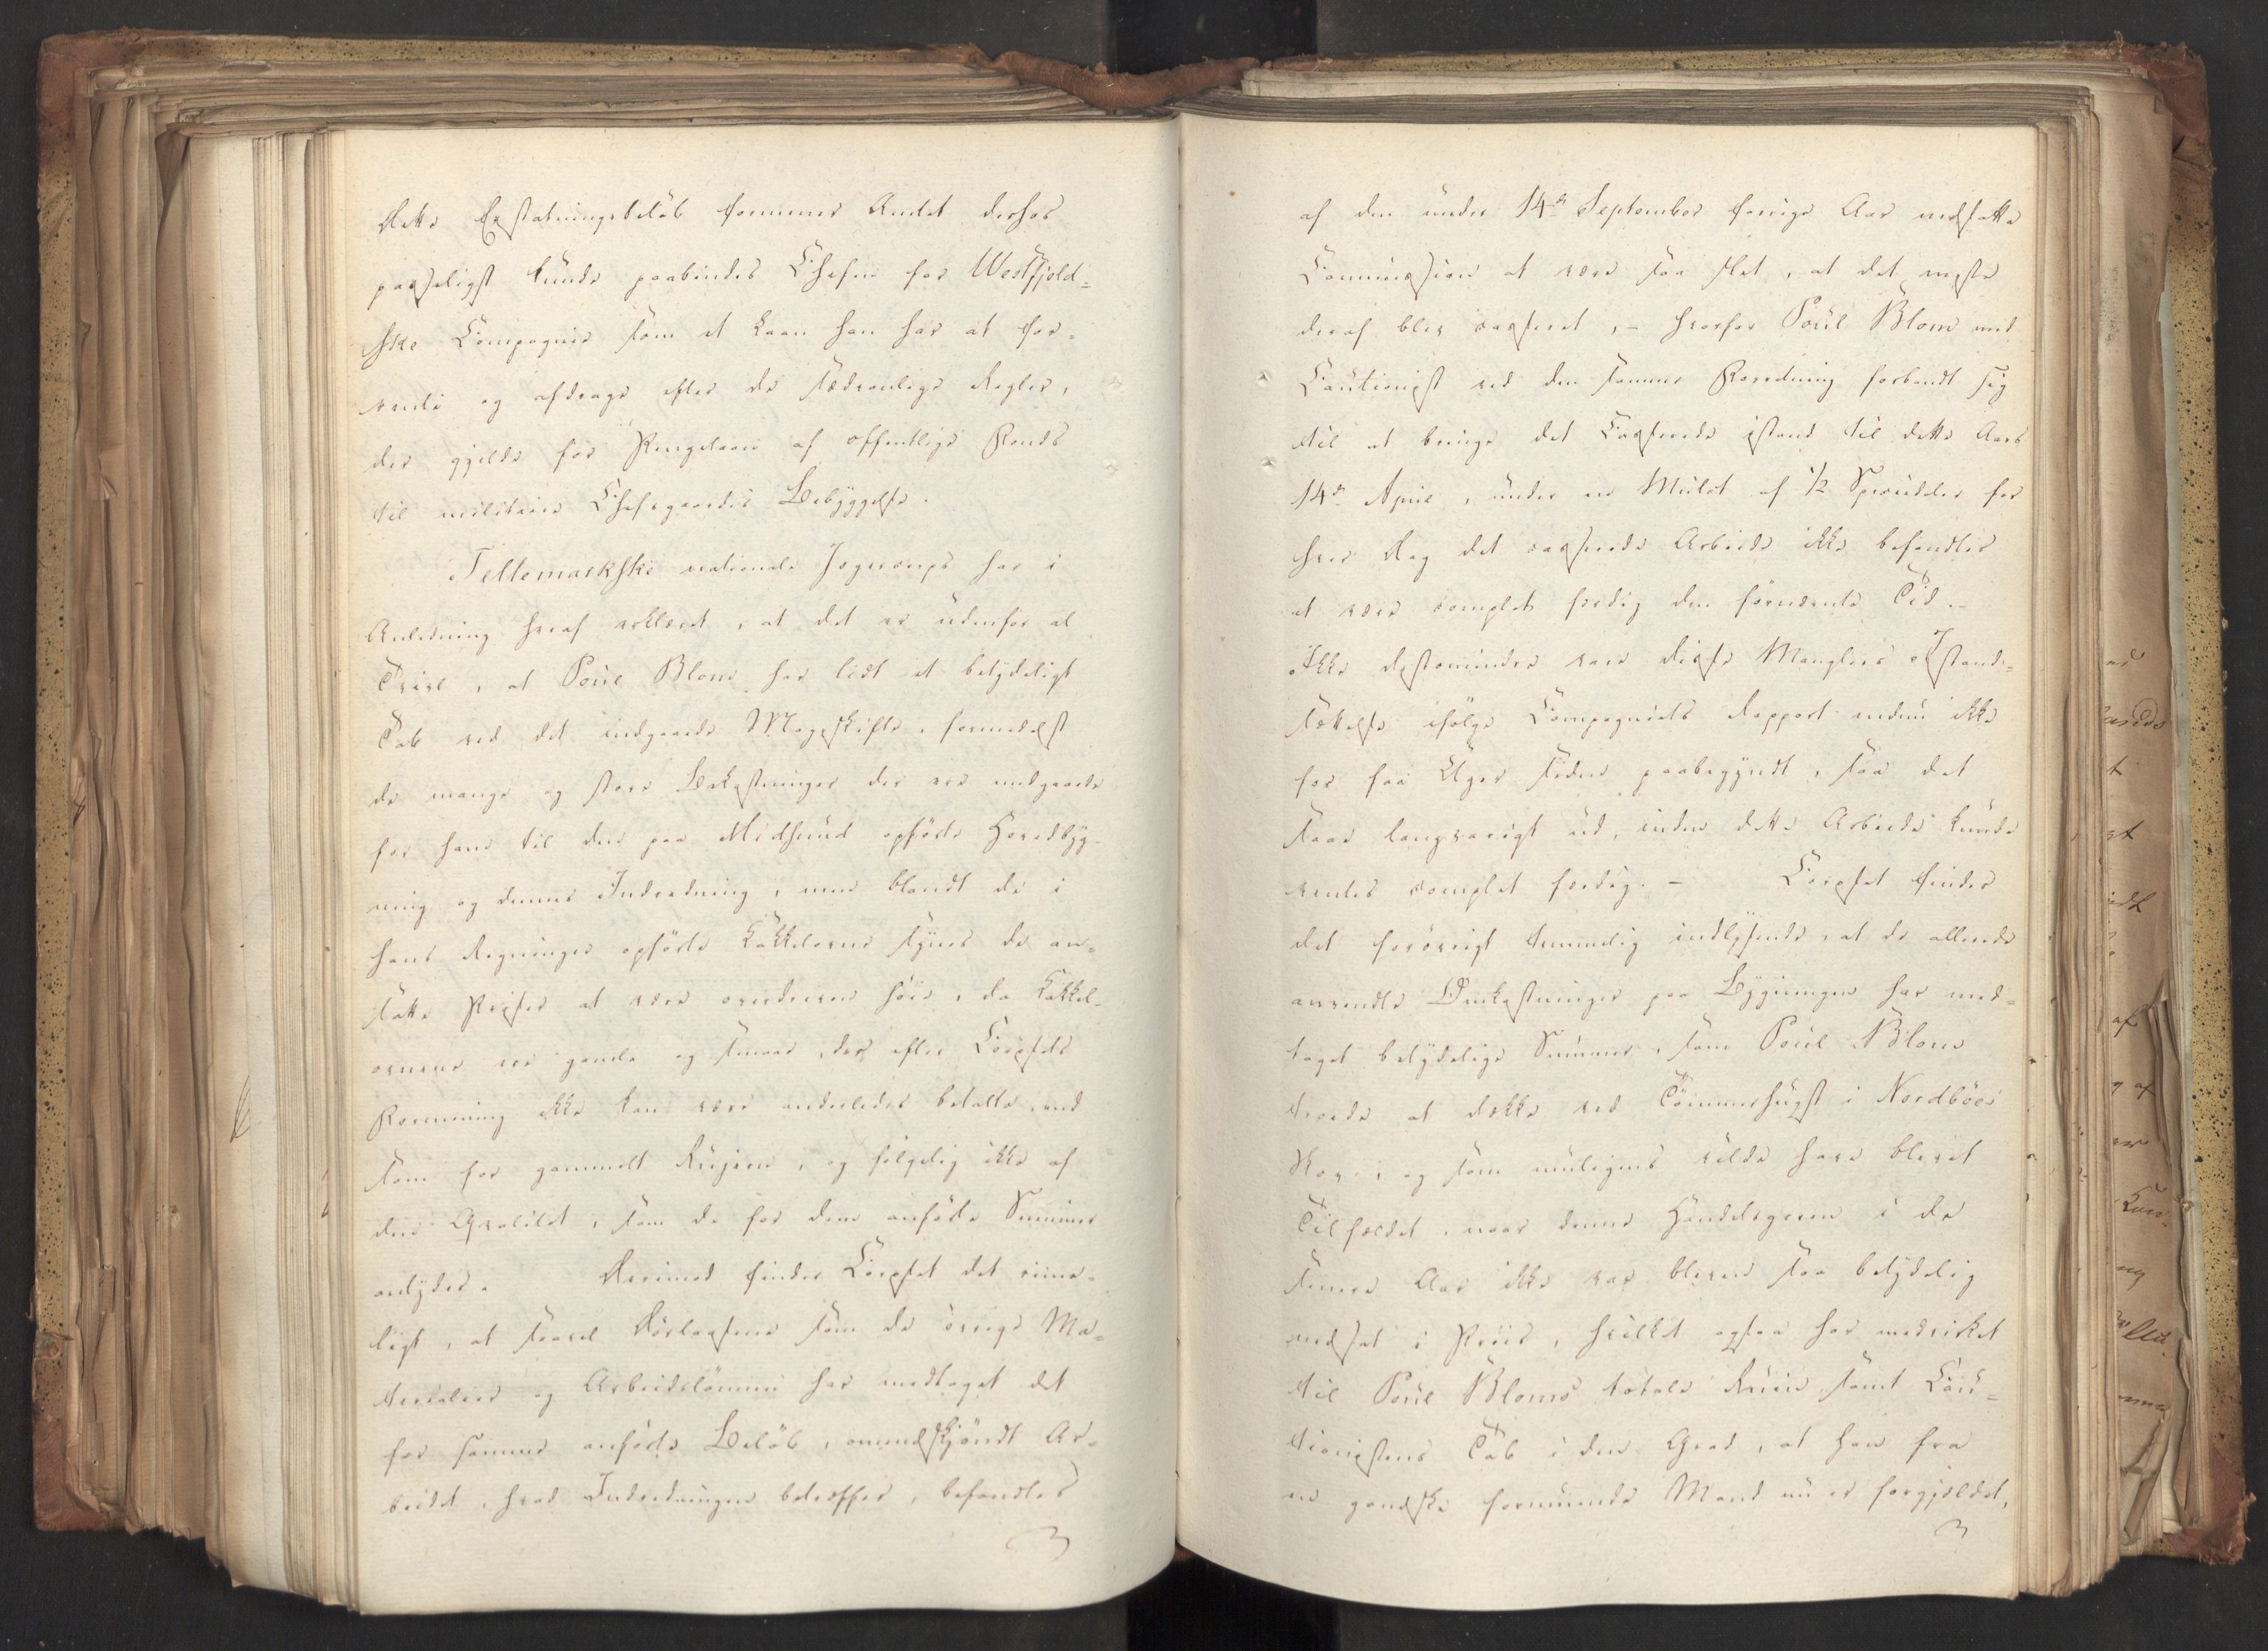 Dette Erstatningsbeløb formener Amtet derhos
passeligst kunde paabindes Chefen for Westfjeld-
ske Compagnie som et Laan han har at for-
rente og afdrage efter de sædvanlige Regler,
der gjelde for Pengelaan af offentlige Fonds
til militaire Chefsgaardes Bebyggelse.
Tellemarkske nationale Jægercorps har i
Anledning heraf erklæret, at det er udenfor al
Tvivl, at Poul Blom har lidt et betydeligt
Tab ved det indgaaede Mageskifte, formedelst
de mange og store Bekostninger der ere medgaaede
for ham til den paa Midsund opførte Hovedbyg-
ning og dennes Indredning, men blandt de i
hans Regninger opførte Kakkelovne synes de an-
satte Priser at være overdreven høie, da Kakkel-
ovnene ere gamle og smaae, der efter Corpsets
Formening ikke kan være anderledes betalte, end
som for gammelt Rujern, og følgelig ikke af
den Qvalitet, som de for dem anførte Summer
antyder. Derimod finder Corpset det rime-
ligt, at saavel Dørlaasene som de øvrige Ma-
terialier og Arbeidslønnen har medtaget det
for samme anførte Beløb, omendskjøndt Ar-
beidet, hvad Indredningen betræffer, befandtes
af den under 14de September forrige Aar nedsatte
Commission at være saa slet, at det meste
deraf blev casseret, – hvorfor Poul Blom med
Cautionist ved den samme Forretning forbandt sig
til at bringe det Casserede istand til dette Aars
14de April, under en Mulct af 1/2 Speciedaler for
hver Dag det casserede Arbeide ikke befandtes
at være complet færdig den førnævnte Tid. –
Ikke destomindre vare disse Manglers Istand-
sættelse ifølge Compagniets Rapport endnu ikke
for faa Uger siden paabegyndt, saa det
saae langvarigt ud, inden dette Arbeide kunde
ventes complet færdig. – Corpset finder
det forøvrigt temmelig indlysende, at de allerede
anvendte Omkostninger paa Bygningen har med-
taget betydelige Summer, som Poul Blom
troede at dække ved Tømmerhugst i Nordbøes
Skov, og som muligens vilde have blevet
Tilfældet, naar denne Handelsgreen i de
senere Aar ikke var bleven saa betydelig
nedsat i Priis, hvilket ogsaa har medvirket
til Poul Bloms totale Ruin samt Cau-
tionistens Tab i den Grad, at han fra
en gandske formuende Mand nu er forgjældet,